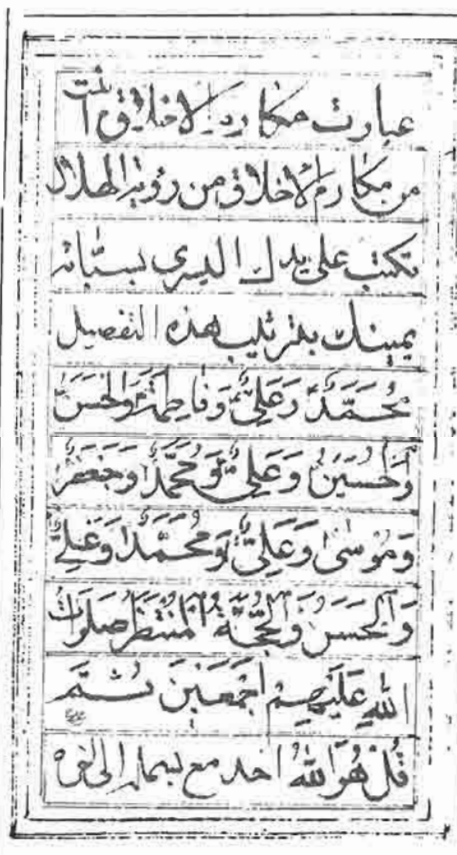 عبارت مكارم الاخلاق است
من مكارم الاخلاق من رؤية الهلال
تكتب على يدك اليسرى بسبابة
يمينك بترتيب هذه التفصيل
مُحَمَّدٌ وَعَلِيٌّ وَفَاطِمَةُ وَالْحَسَنُ
وَالْحُسَيْنُ وَعَلِيٌّ وَمُحَمَّدٌ وَجَعْفَرٌ
وَمُوسٰى وَعَلِيٌّ وَمُحَمَّدٌ وَعَلِيٌّ
وَالْحَسَنُ وَالْحُجَّةُ الْمُنْتَظَرُ صَلَوَاتُ
اللهِ عَلَيْهِمْ أَجْمَعِينَ ثُمَّ
قُلْ هُوَ اللهُ احد مع بسمله الى